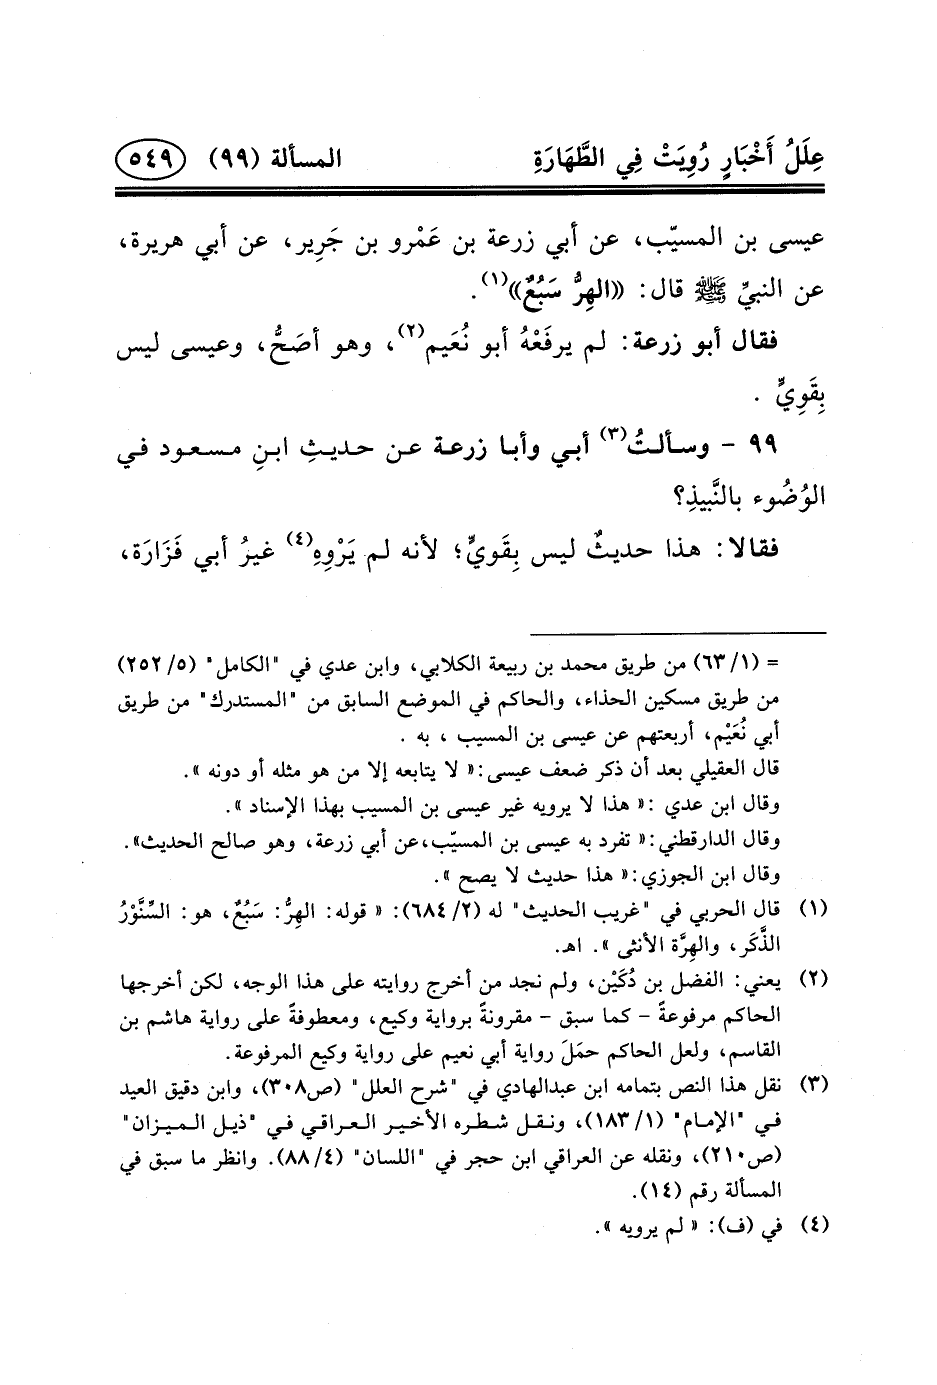 عِلَلُ أَخْبَارٍ رُوِيَتْ فِي الطَّهَارَةِ المسألة (٩٩) ٥٤٩
عيسى بن المسيّب، عن أبي زرعة بن عَمْرو بن جَرِير، عن أبي هريرة،
عن النبيِّ ﷺ قال: «الهِرُّ سَبُعٌ»(١).
فقال أبو زرعة: لم يرفَعْهُ أبو نُعَيم(٢)، وهو أصَحُّ، وعيسى ليس
بِقَوِيٍّ .
٩٩ - وسألتُ(٣) أبي وأبا زرعة عن حديثِ ابنِ مسعود في
الوُضُوء بالنَّبيذِ؟
فقالا: هذا حديثٌ ليس بِقَويٍّ؛ لأنه لم يَرْوِهِ(٤) غيرُ أبي فَزَارَة،
= (٦٣/١) من طريق محمد بن ربيعة الكلابي، وابن عدي في "الكامل" (٢٥٢/٥)
من طريق مسكين الحذاء، والحاكم في الموضع السابق من "المستدرك" من طريق
أبي نُعَيْم، أربعتهم عن عيسى بن المسيب ، به .
قال العقيلي بعد أن ذكر ضعف عيسى:« لا يتابعه إلا من هو مثله أو دونه ».
وقال ابن عدي :« هذا لا يرويه غير عيسى بن المسيب بهذا الإسناد ».
وقال الدارقطني:« تفرد به عيسى بن المسيّب،عن أبي زرعة، وهو صالح الحديث».
وقال ابن الجوزي:« هذا حديث لا يصح ».
(١) قال الحربي في "غريب الحديث" له (٦٨٤/٢): « قوله: الهِرُّ: سَبُعٌ، هو: السِّنَّوْرُ
الذَّكَر، والهِرَّة الأنثى ». اهـ.
(٢) يعني: الفضل بن دُكَيْن، ولم نجد من أخرج روايته على هذا الوجه، لكن أخرجها
الحاكم مرفوعةً - كما سبق - مقرونةً برواية وكيع، ومعطوفةً على رواية هاشم بن
القاسم، ولعل الحاكم حمَلَ رواية أبي نعيم على رواية وكيع المرفوعة.
(٣) نقل هذا النص بتمامه ابن عبدالهادي في "شرح العلل" (ص٣٠٨)، وابن دقيق العيد
في "الإمام" (١٨٣/١)، ونقل شطره الأخير العراقي في "ذيل الميزان"
(ص٢١٠)، ونقله عن العراقي ابن حجر في "اللسان" (٨٨/٤). وانظر ما سبق في
المسألة رقم (١٤).
(٤) في (ف): « لم يرويه ».